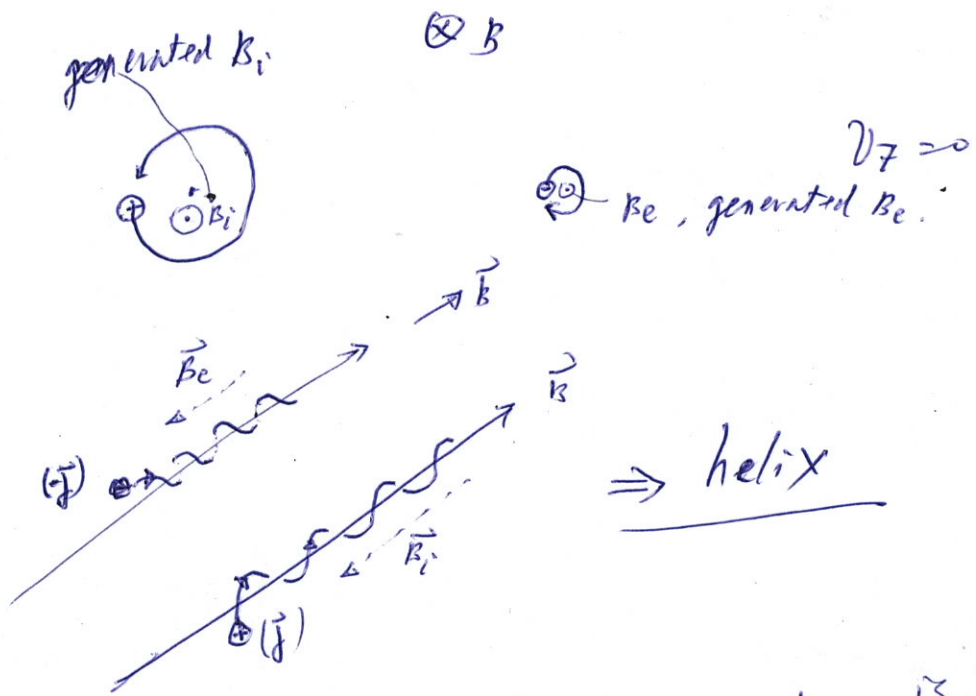 ⊗ B
generated Bi
V7 = 0
⊕ ⊙ Bi
⊖ ⊙ Be, generated Be.
B⃗
B⃗e
B⃗
(-j⃗) ⊖
⇒ helix
B⃗i
⊕ (j⃗)